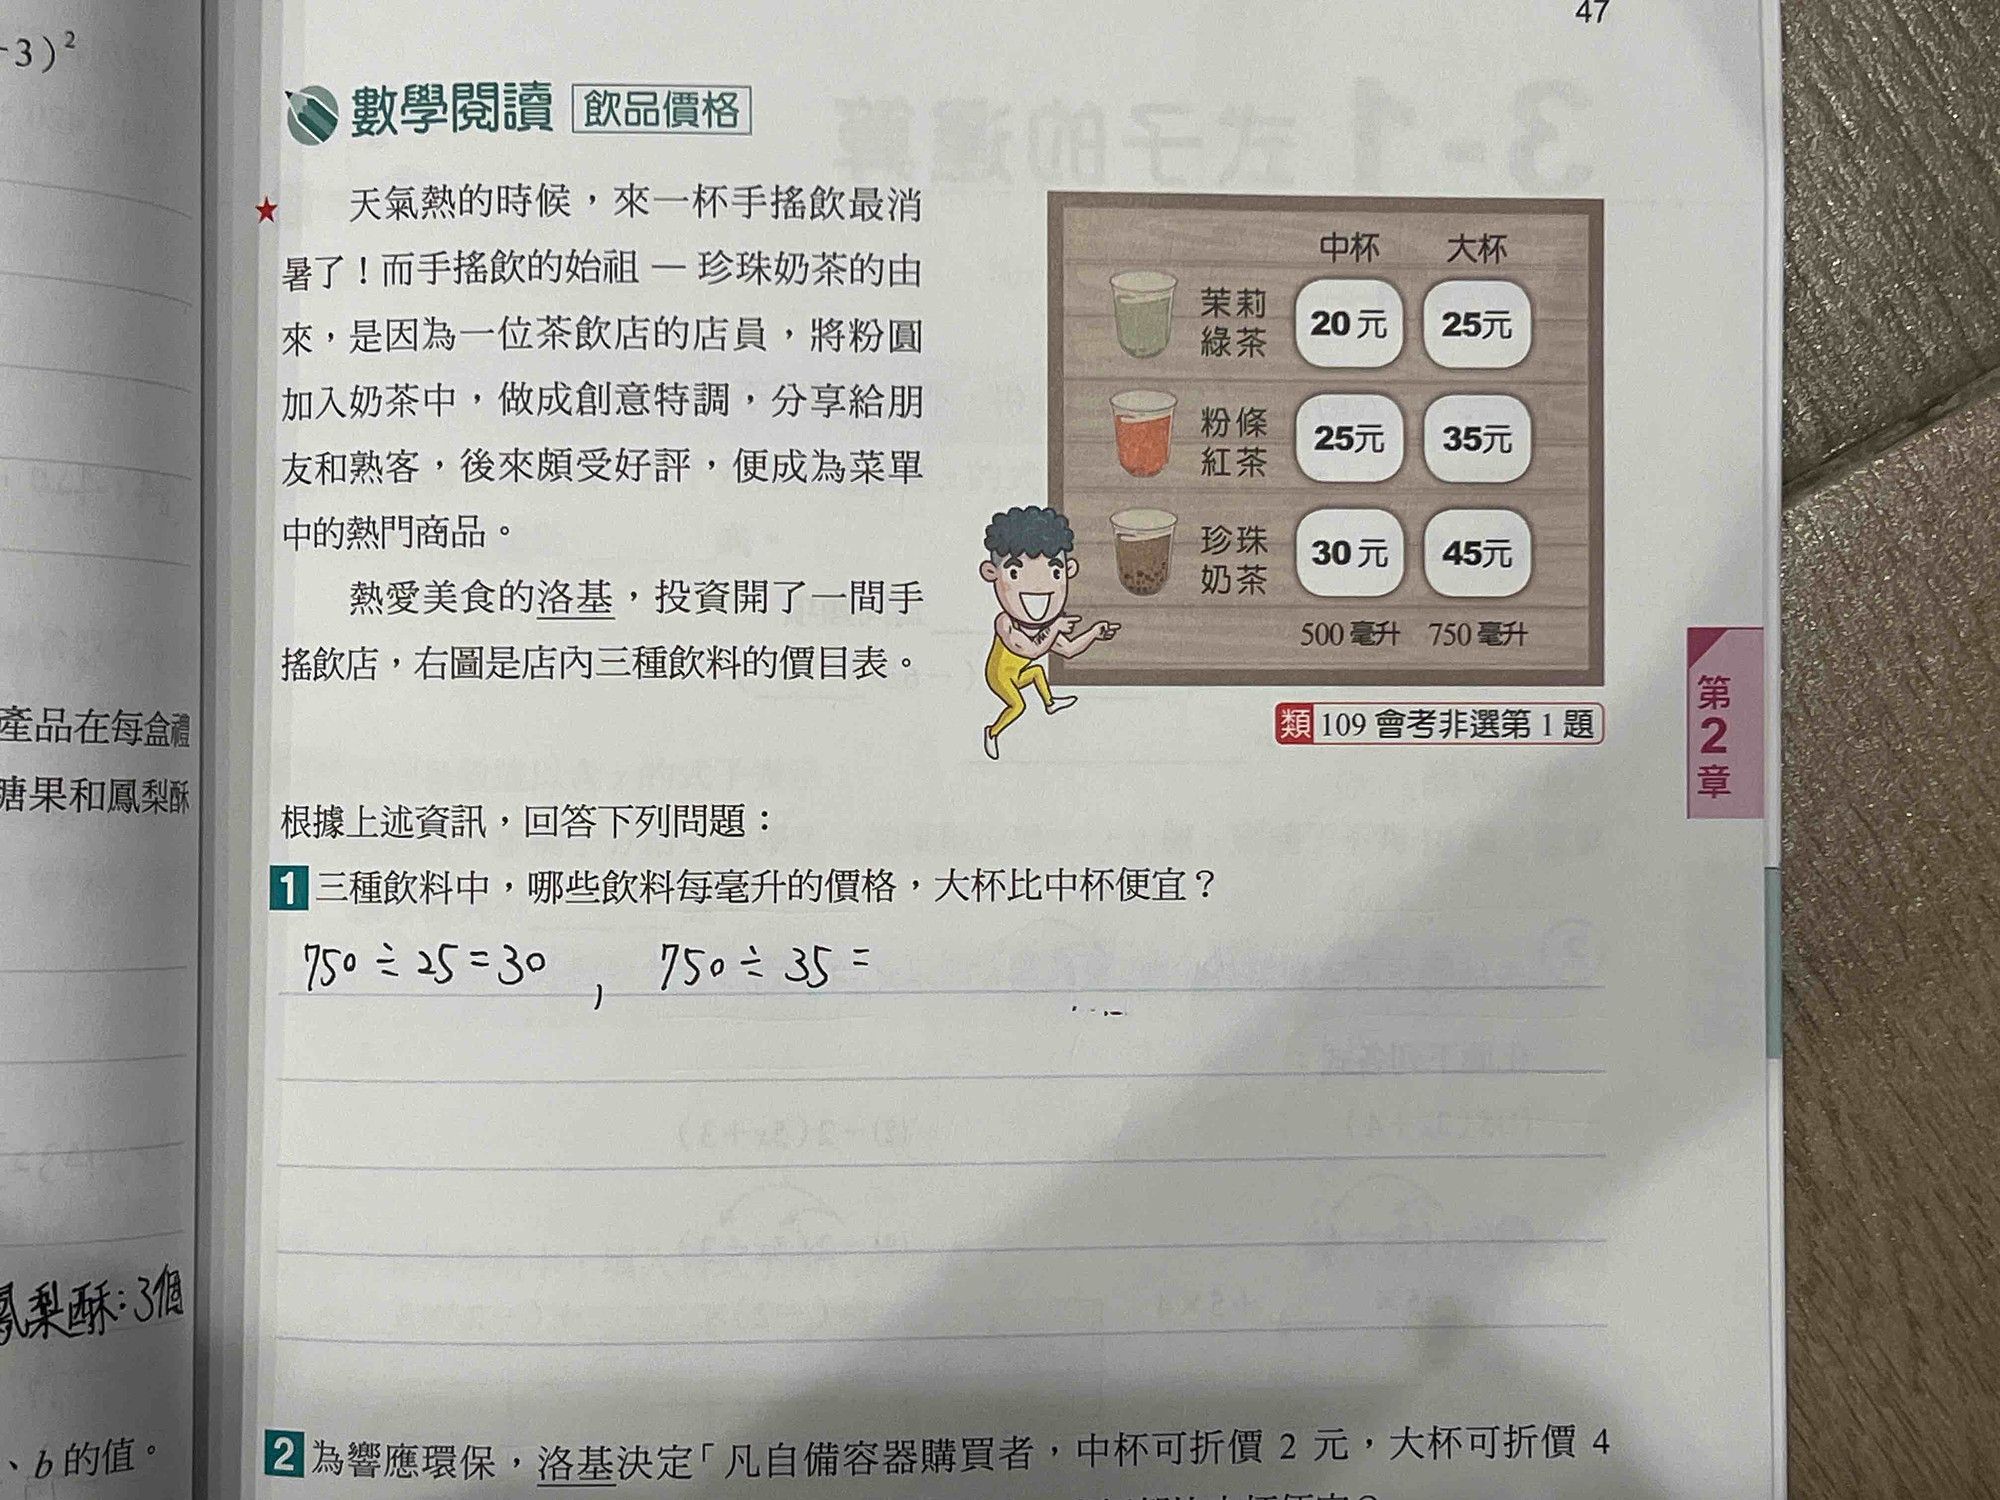 47
-3)²
數學閱讀 飲品價格
★ 天氣熱的時候，來一杯手搖飲最消
暑了！而手搖飲的始祖 — 珍珠奶茶的由
來，是因為一位茶飲店的店員，將粉圓
加入奶茶中，做成創意特調，分享給朋
友和熟客，後來頗受好評，便成為菜單
中的熱門商品。
熱愛美食的洛基，投資開了一間手
搖飲店，右圖是店內三種飲料的價目表。
中杯 大杯
茉莉
綠茶
20元 25元
粉條
紅茶
25元 35元
珍珠
奶茶
30元 45元
500毫升 750毫升
類 109 會考非選第 1 題
第2章
產品在每盒禮
糖果和鳳梨酥
根據上述資訊，回答下列問題：
1 三種飲料中，哪些飲料每毫升的價格，大杯比中杯便宜？
750÷25=30 , 750÷35=
鳳梨酥:3個
、b的值。
2 為響應環保，洛基決定「凡自備容器購買者，中杯可折價 2 元，大杯可折價 4